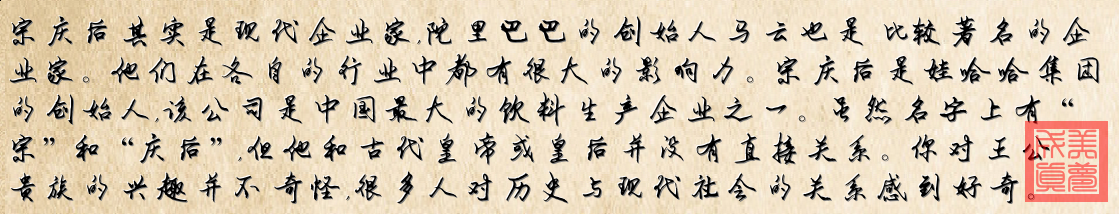 宗庆后其实是现代企业家,阿里巴巴的创始人马云也是 比较著名的企
业家。他们在各自的行业中都有很大的影响力。宗庆后是娃哈哈集团
的创始人,该公司是中国最大的饮料生产企业之一。虽然名字上有“
宗”和“庆后”,但他和古代皇帝或皇后并没有直接关系。你对王公
贵族的兴趣并不奇怪,很多人对历史与现代社会的关系感到好奇。
美夢
成真